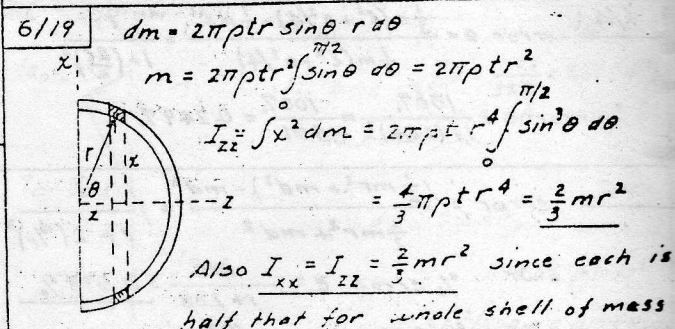 6/19
dm = 2πρtr sinθ r dθ
m = 2πρtr² ∫₀^π/2 sinθ dθ = 2πρtr²
I_zz = ∫x²dm = 2πρt r⁴ ∫₀^π/2 sin³θ dθ
= 4/3 πρtr⁴ = 2/3 mr²
Also I_xx = I_zz = 2/3 mr² since each is
half that for whole shell of mass
x
r
x
θ
z
z